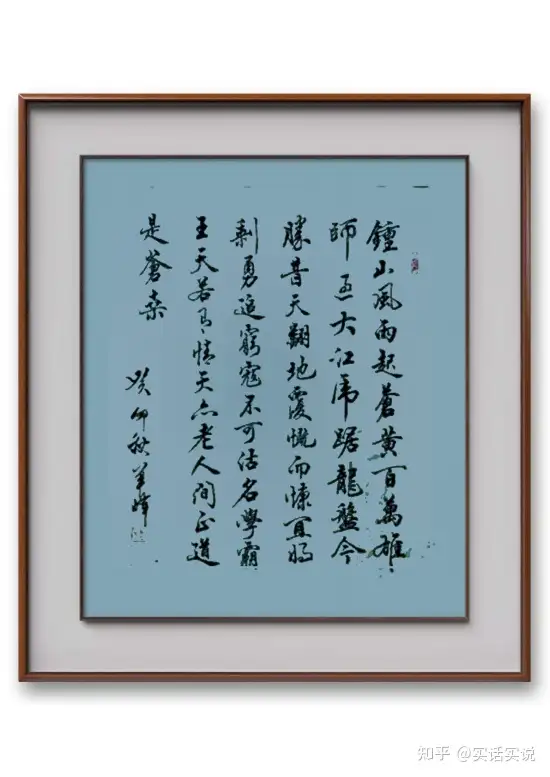 鍾山風雨起蒼黃百萬雄
師過大江虎踞龍盤今
勝昔天翻地覆慨而慷宜將
剩勇追窮寇不可沽名學霸
王天若有情天亦老人間正道
是蒼桑
癸卯秋羊峰
知乎 @实话实说